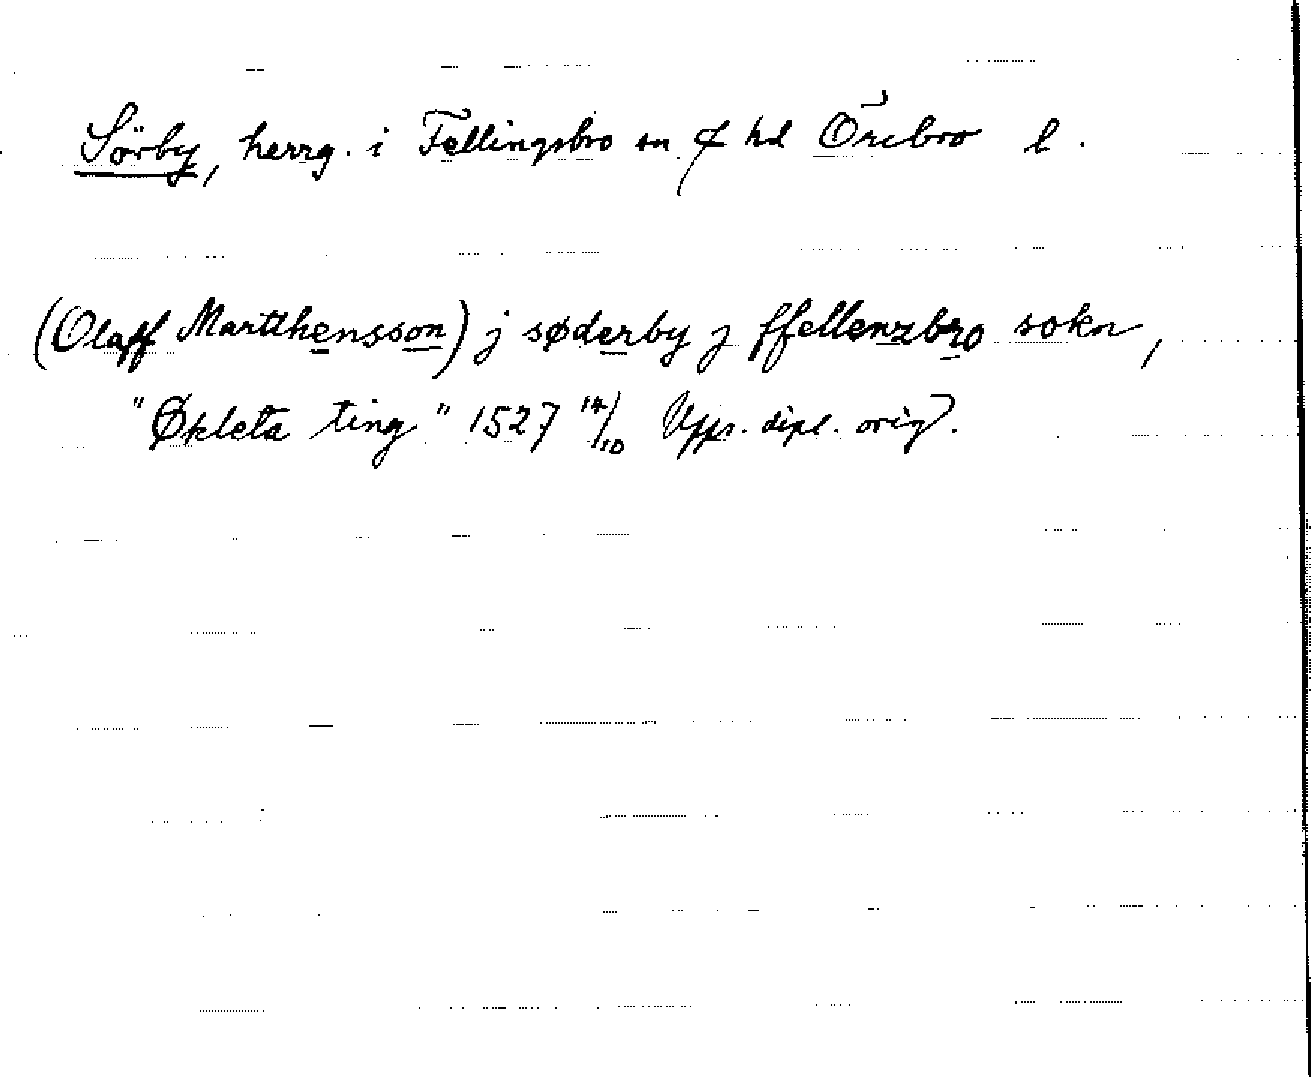 Sörby, herrg. i Fellingsbro sn ȼ hd Örebro l.
(Olaff Martthensson) j søderby j ffellenzbro sokn,
"Økleta ting" 1527 14/10 Upps. dipl. orig.